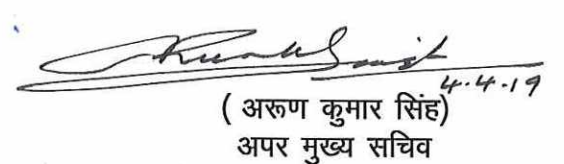 4.4.19
( अरूण कुमार सिंह)
अपर मुख्य सचिव